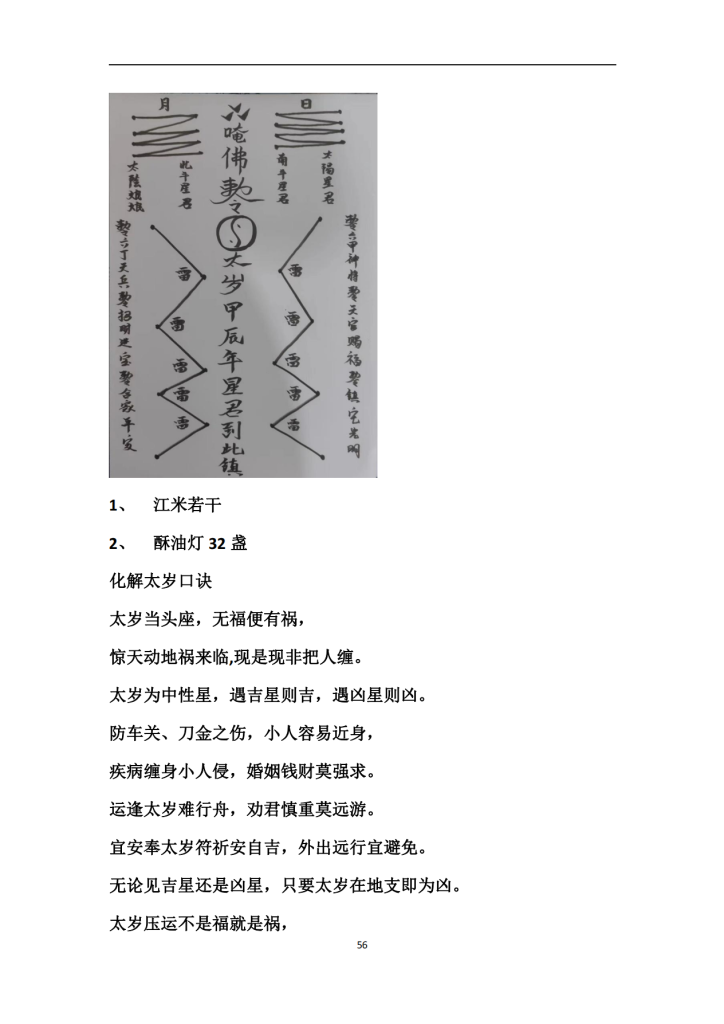 月
日
唵佛敕令
太岁甲辰年星君到此镇
太阳星君
南斗星君
北斗星君
太陰娘娘
雷
雷
雷
雷
雷
雷
雷
雷
雷
1、 江米若干
2、 酥油灯 32 盏
化解太岁口诀
太岁当头座，无福便有祸，
惊天动地祸来临,现是现非把人缠。
太岁为中性星，遇吉星则吉，遇凶星则凶。
防车关、刀金之伤，小人容易近身，
疾病缠身小人侵，婚姻钱财莫强求。
运逢太岁难行舟，劝君慎重莫远游。
宜安奉太岁符祈安自吉，外出远行宜避免。
无论见吉星还是凶星，只要太岁在地支即为凶。
太岁压运不是福就是祸，
56